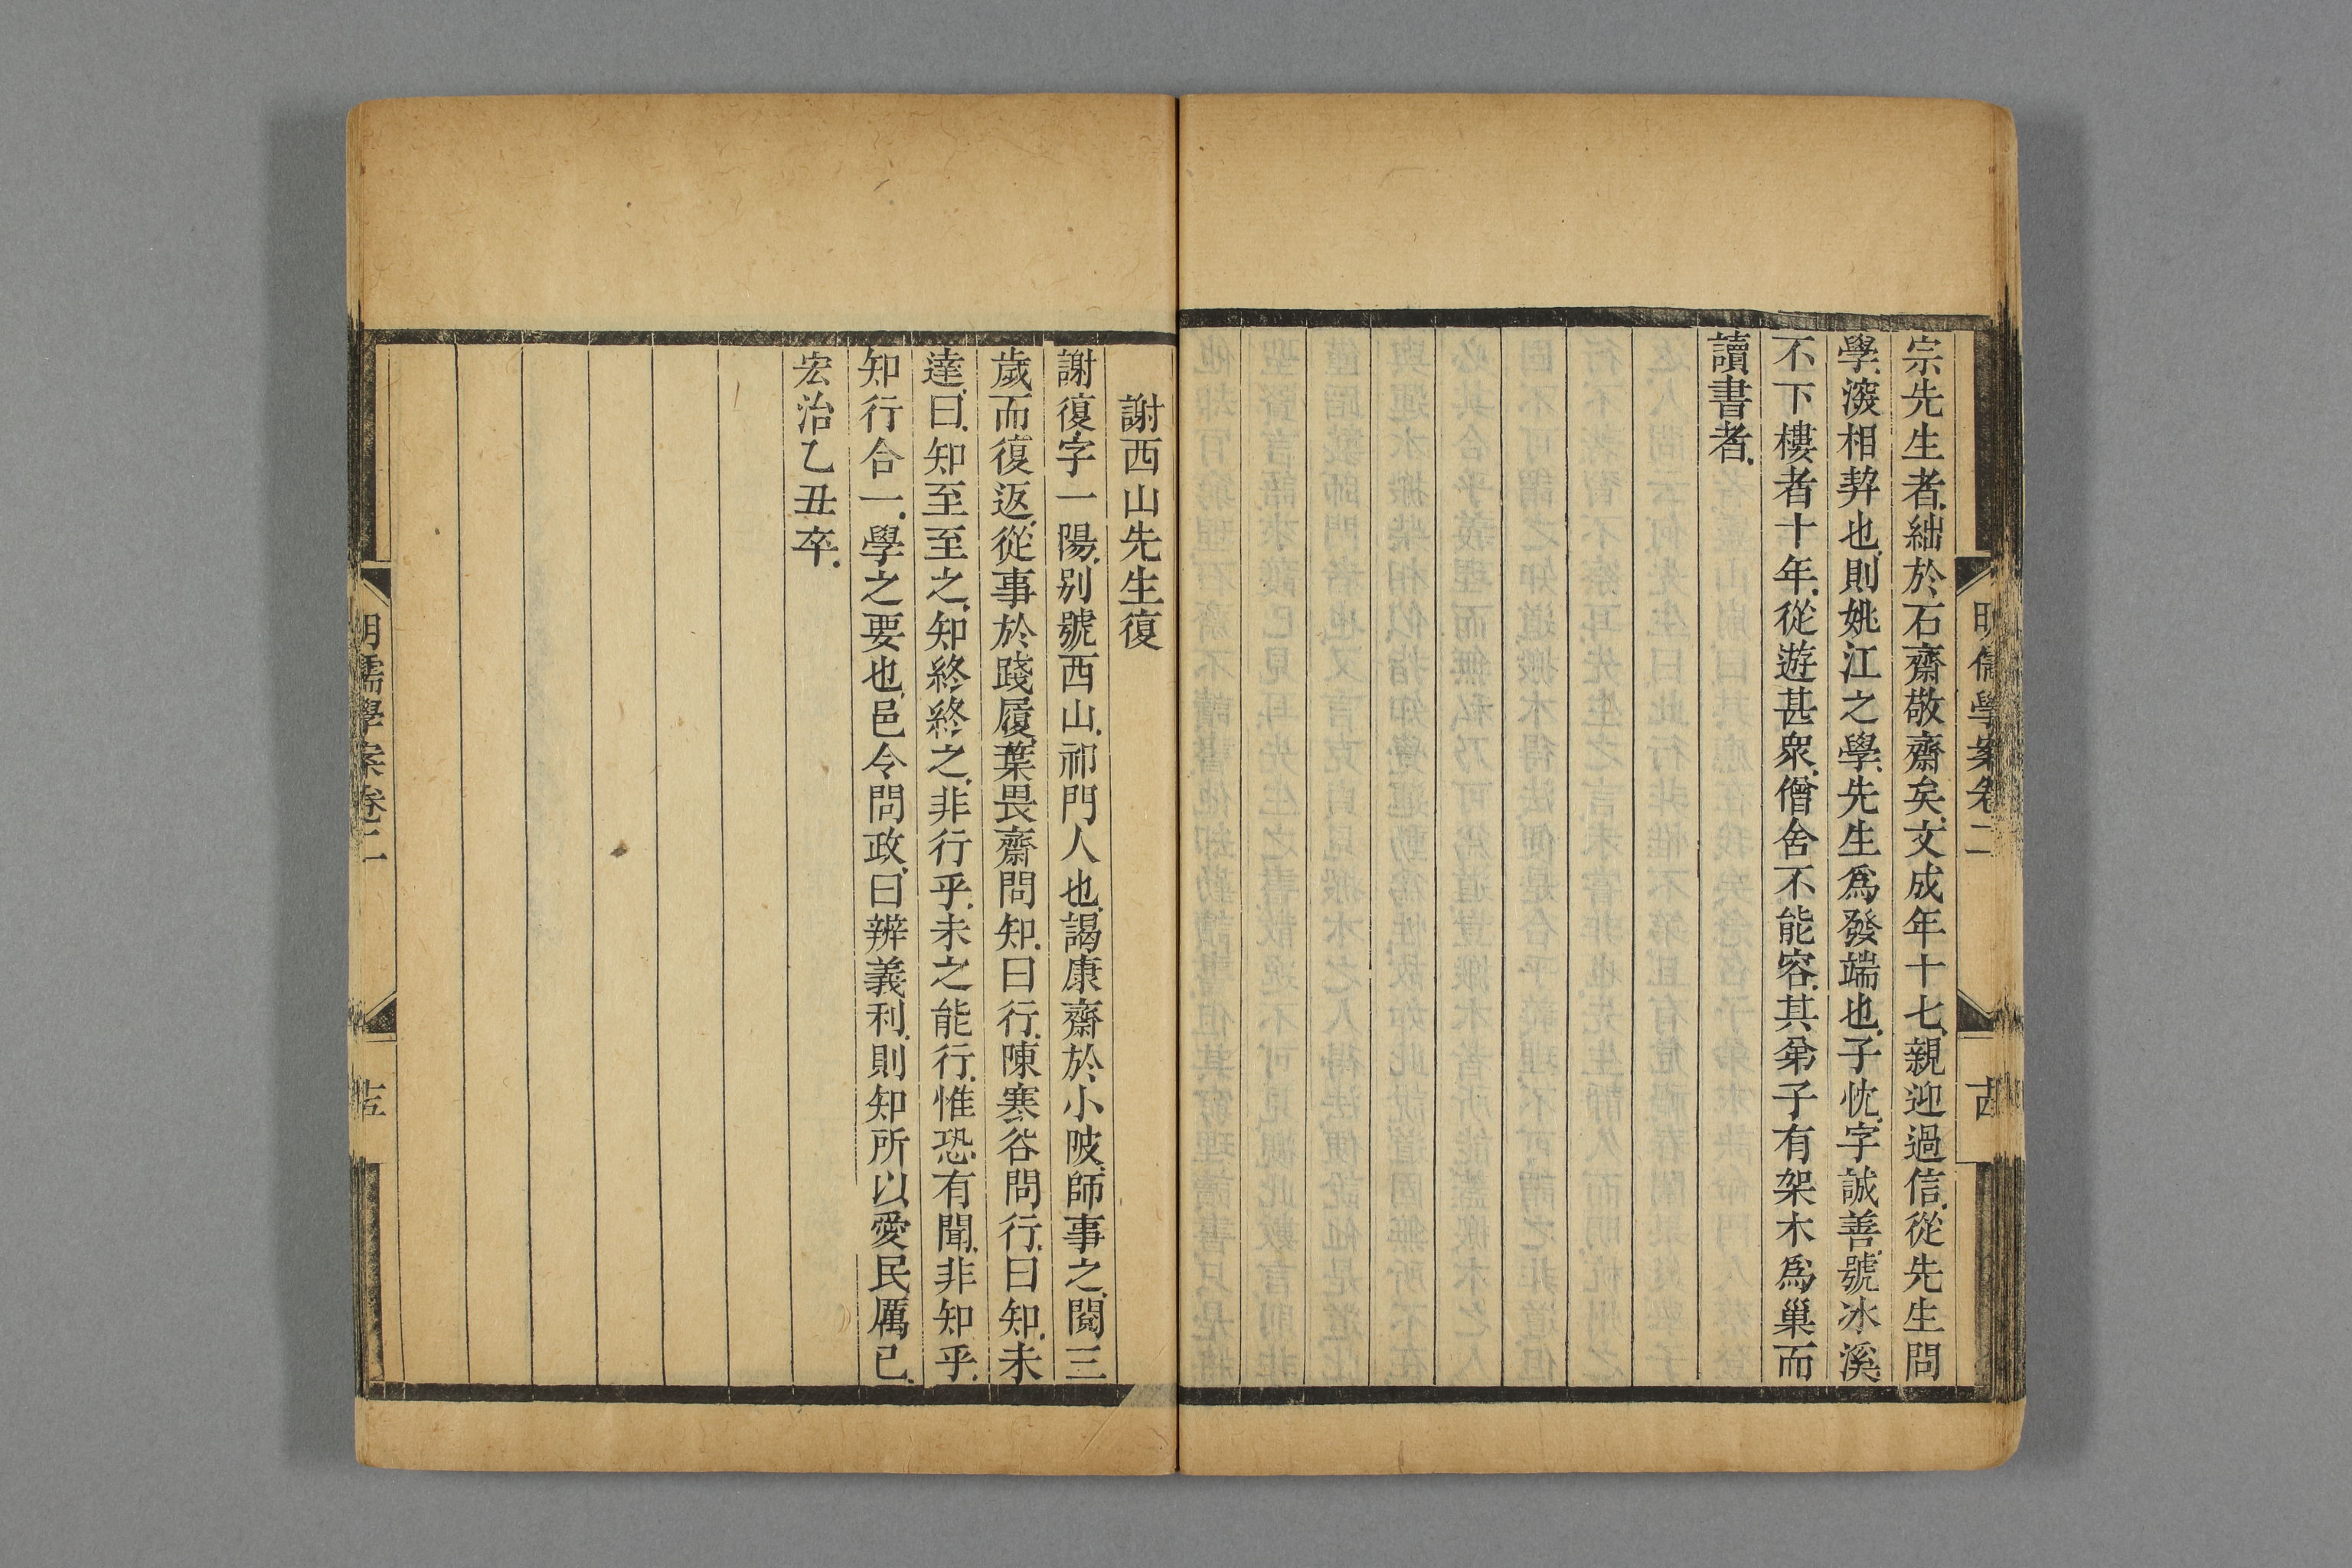 明儒學案卷二
宗先生者絀於石齋敬齋矣文成年十七親迎過信從先生問
學滾相契也則姚江之學先生爲發端也子忱字誠善號冰溪
不下樓者十年從遊甚衆僧舍不能容其弟子有架木爲巢而
讀書者
謝西山先生復
謝復字一陽别號西山祁門人也謁康齋於小陂師事之閱三
歲而復返從事於踐履葉畏齋問知曰行陳寒谷問行曰知未
達曰知至至之知終終之非行乎未之能行惟恐有聞非知乎
知行合一學之要也邑令問政曰辨義利則知所以愛民厲己
宏治乙丑卒
明儒學案卷二